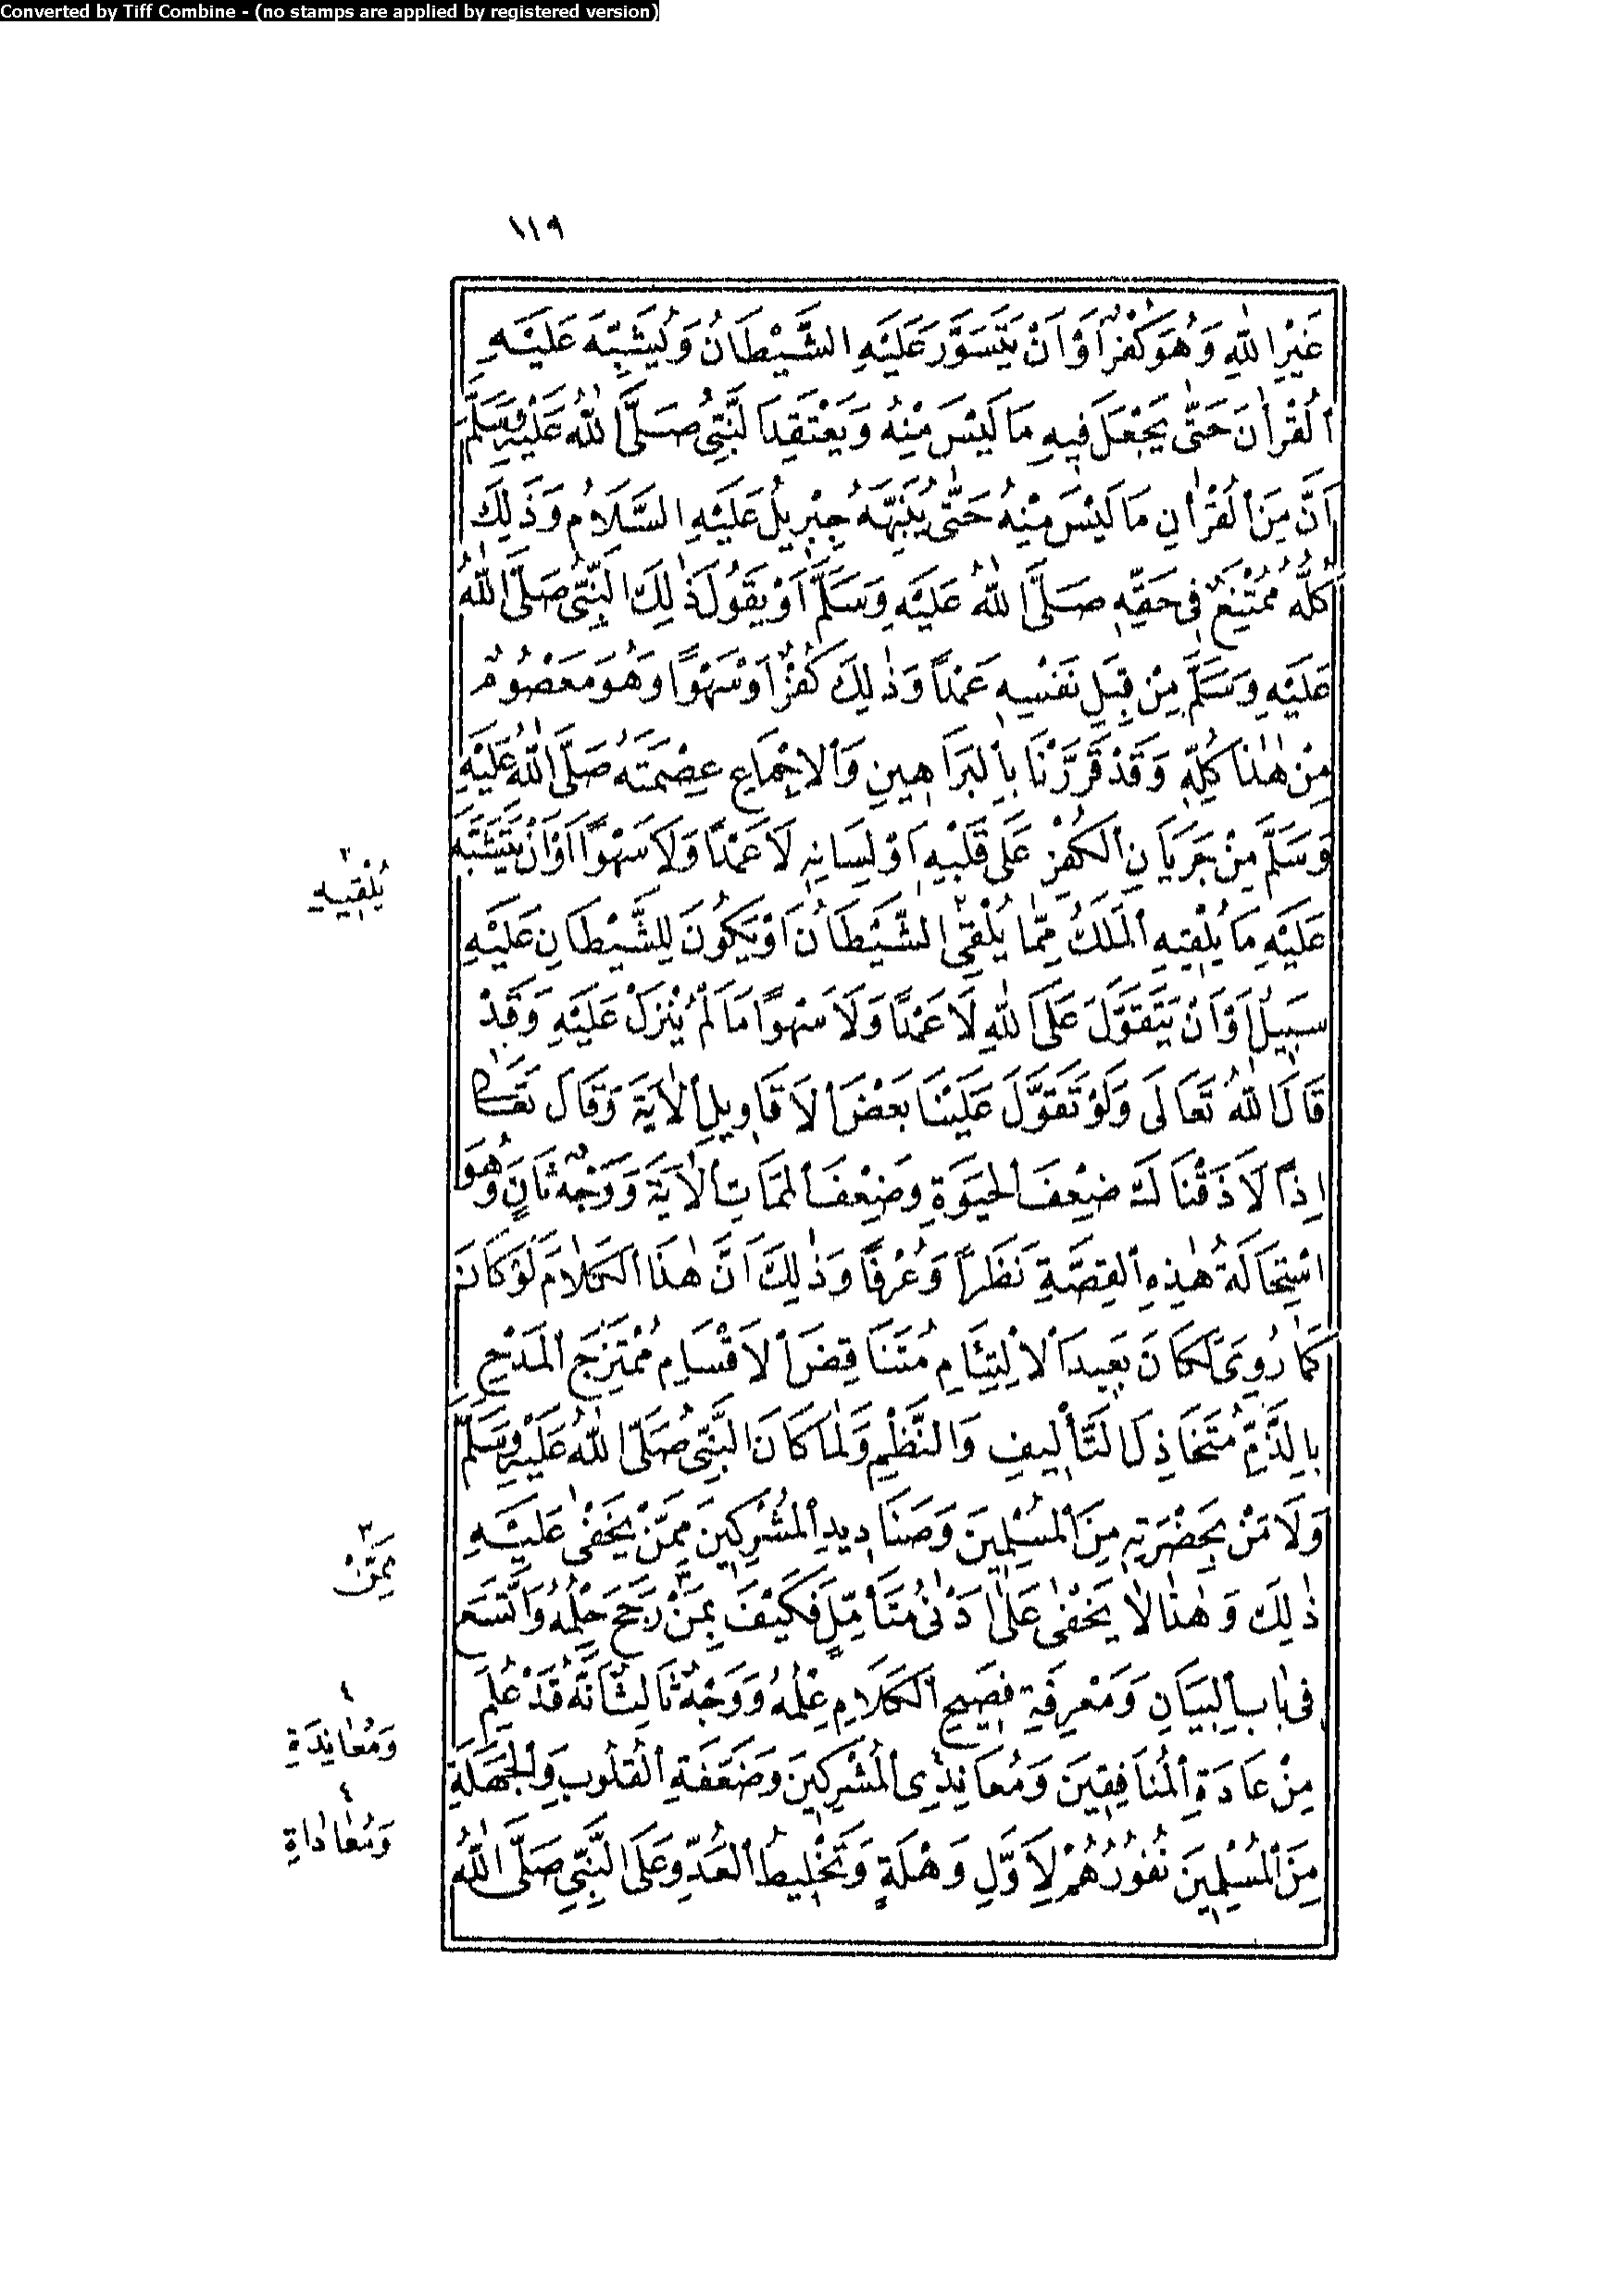 Converted by Tiff Combine - (no stamps are applied by registered version)
١١٩
غَيْرِ اللهِ وَهُوَ كُفْرٌ اَوْ اَنْ يَتَسَوَّرَ عَلَيْهِ الشَّيْطَانُ وَيُشَبِّهَ عَلَيْهِ
الْقُرْاٰنَ حَتّٰى يَجْعَلَ فِيهِ مَا لَيْسَ مِنْهُ وَيَعْتَقِدَ النَّبِىُّ صَلَّى اللهُ عَلَيْهِ وَسَلَّمَ
اَنَّ مِنَ الْقُرْاٰنِ مَا لَيْسَ مِنْهُ حَتّٰى يُنَبِّهَهُ جِبْرِيلُ عَلَيْهِ السَّلَامُ وَذٰلِكَ
كُلُّهُ مُمْتَنِعٌ فِى حَقِّهِ صَلَّى اللهُ عَلَيْهِ وَسَلَّمَ اَوْ يَقُولَ ذٰلِكَ النَّبِىُّ صَلَّى اللهُ
عَلَيْهِ وَسَلَّمَ مِنْ قِبَلِ نَفْسِهِ عَمْدًا وَذٰلِكَ كُفْرٌ اَوْ سَهْوًا وَهُوَ مَعْصُومٌ
مِنْ هٰذَا كُلِّهِ وَقَدْ قَرَّرْنَا بِالْبَرَاهِينِ وَالْاِجْمَاعِ عِصْمَتَهُ صَلَّى اللهُ عَلَيْهِ
وَسَلَّمَ مِنْ جَرَيَانِ الْكُفْرِ عَلَى قَلْبِهِ اَوْ لِسَانِهِ لَا عَمْدًا وَلَا سَهْوًا اَوْ اَنْ يَتَشَبَّهَ
عَلَيْهِ مَا يُلْقِيهِ الْمَلَكُ مِمَّا يُلْقِى ٢ الشَّيْطَانُ اَوْ يَكُونَ لِلشَّيْطَانِ عَلَيْهِ
سَبِيلٌ اَوْ اَنْ يَتَقَوَّلَ عَلَى اللهِ لَا عَمْدًا وَلَا سَهْوًا مَا لَمْ يُنْزَلْ عَلَيْهِ وَقَدْ
قَالَ اللهُ تَعَالَى وَلَوْ تَقَوَّلَ عَلَيْنَا بَعْضَ الْاَقَاوِيلِ الْاٰيَةَ وَقَالَ تَعَالَى
اِذًا لَاَذَقْنَاكَ ضِعْفَ الْحَيٰوةِ وَضِعْفَ الْمَمَاتِ الْاٰيَةَ وَوَجْهٌ ثَانٍ وَهُوَ
اسْتِحَالَةُ هٰذِهِ الْقِصَّةِ نَظَرًا وَعُرْفًا وَذٰلِكَ اَنَّ هٰذَا الْكَلَامَ لَوْ كَانَ
كَمَا رُوِىَ لَكَانَ بَعِيدَ الْاِلْتِئَامِ مُتَنَاقِضَ الْاَقْسَامِ مُمْتَزِجَ الْمَدْحِ
بِالذَّمِّ مُتَخَاذِلَ التَّأْلِيفِ وَالنَّظْمِ وَلَمَا كَانَ النَّبِىُّ صَلَّى اللهُ عَلَيْهِ وَسَلَّمَ
وَلَا مَنْ بِحَضْرَتِهِ مِنَ الْمُسْلِمِينَ وَصَنَادِيدِ الْمُشْرِكِينَ مِمَّنْ يَخْفٰى عَلَيْهِ
ذٰلِكَ وَهٰذَا لَا يَخْفٰى عَلٰى اَدْنٰى مُتَأَمِّلٍ فَكَيْفَ بِمَنْ ٣ رَجَحَ حِلْمُهُ وَاتَّسَعَ
فِى بَابِ الْبَيَانِ وَمَعْرِفَةِ فَصِيحِ الْكَلَامِ عِلْمُهُ وَوَجْهٌ ثَالِثٌ اَنَّهُ قَدْ عُلِمَ
مِنْ عَادَةِ الْمُنَافِقِينَ وَمُعَانِدِى ٤ الْمُشْرِكِينَ وَضَعَفَةِ الْقُلُوبِ وَالْجَهَلَةِ
مِنَ الْمُسْلِمِينَ نُفُورُهُمْ لِاَوَّلِ وَهْلَةٍ وَتَخْلِيطُ الْعَدُوِّ عَلَى النَّبِىِّ صَلَّى اللهُ
٢
يُلْقِيهِ
٣
مِمَّنْ
٤
وَمُعَانَدَةِ
٤
وَمُعَادَاةِ